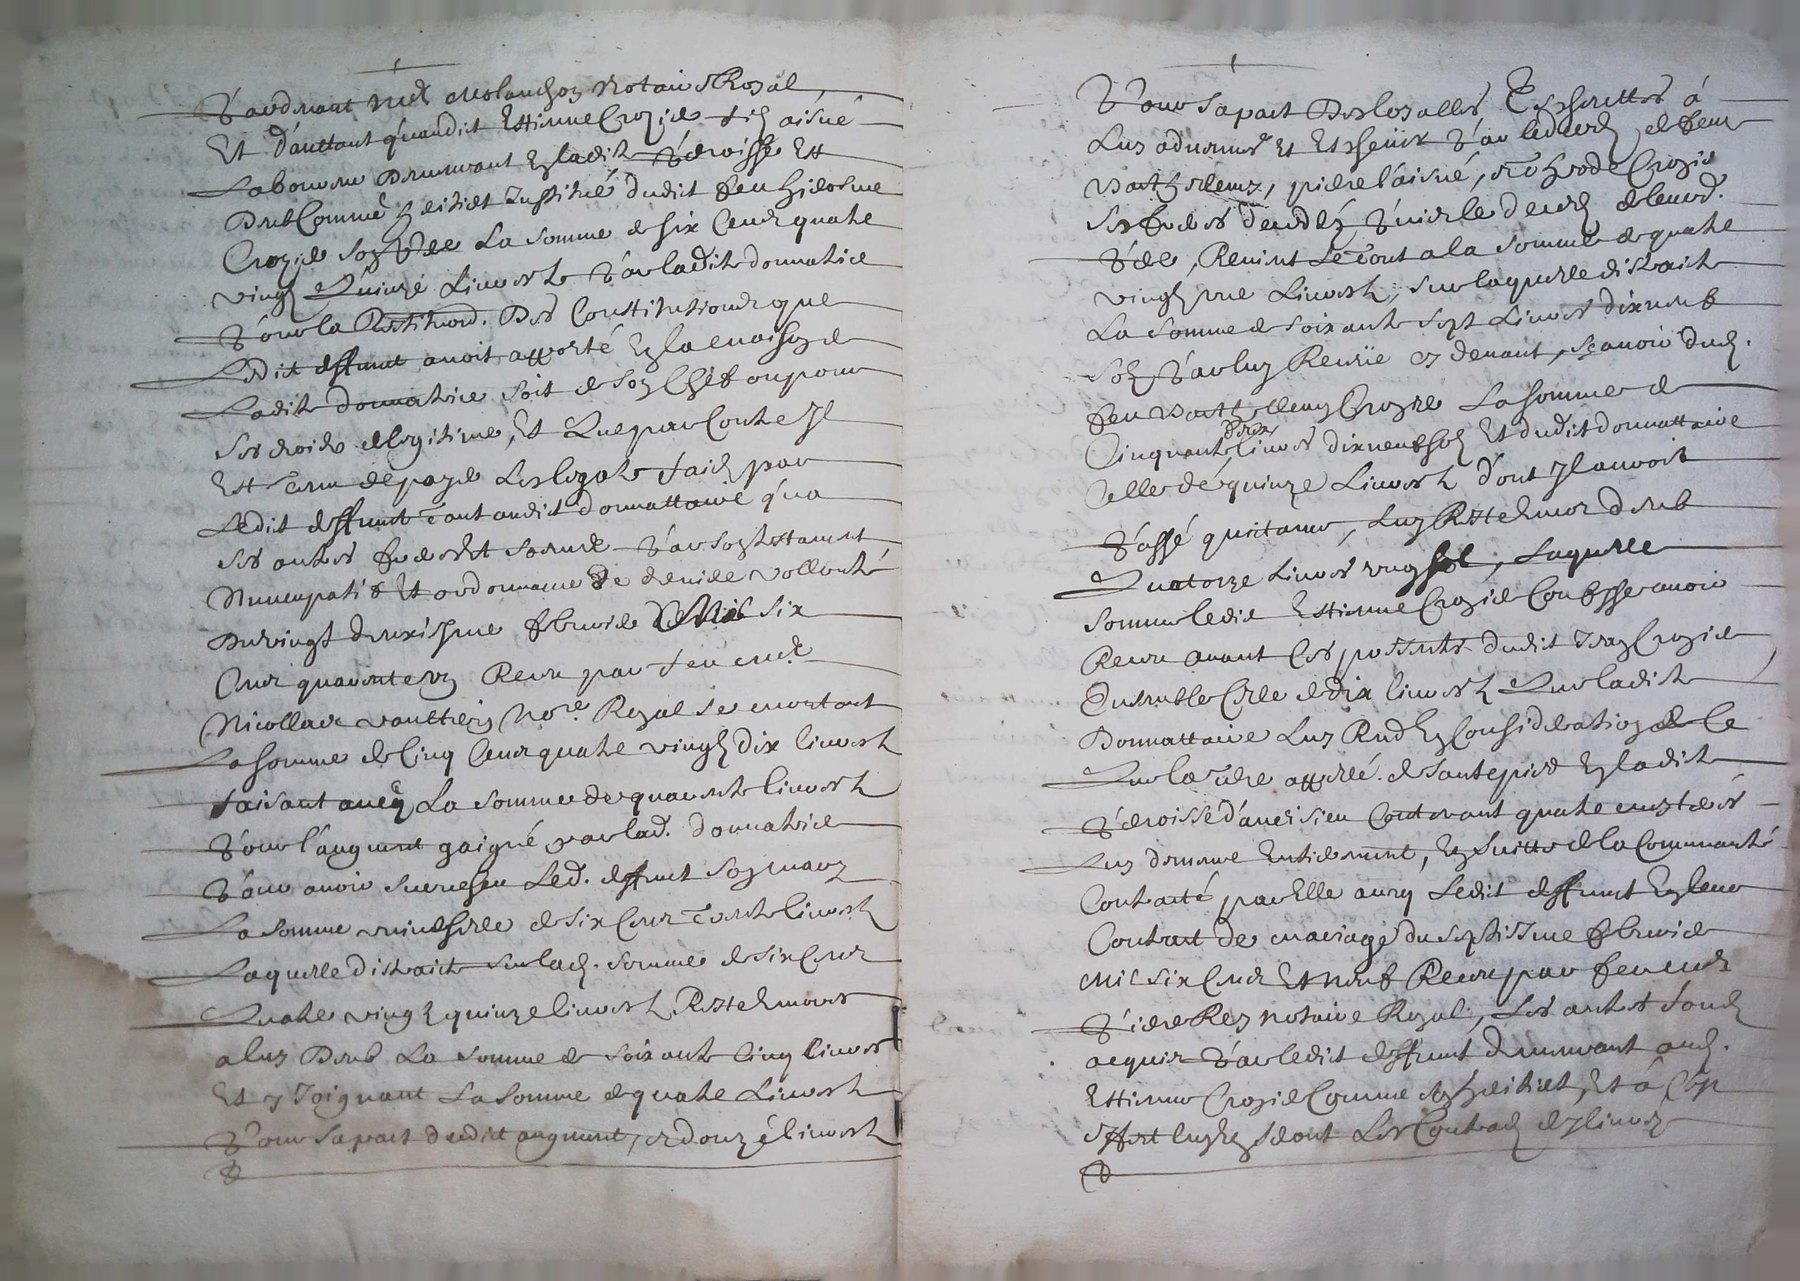 Pardevant me Molanchon Notaire Royal
Et d'auttant qu'audit Estienne Crozie filz aisné
Laboureur demeurant en ladite parroisse Est
Deub Comme heritier Institué dudit feu hierosme
Crozie son pere La somme de six Centz quatre
vingtz Quinze Livres ts par ladite donnatrice
pour la Restitution. Des Constitutions que
Ledit deffunct avoit apporté En la maison de
Ladite donnatrice soit de son Chef ou pour
ses droictz de legitime, Et Que par Contre Il
Est tenu de payer Les legats faictz par
Ledit deffunct tant audit donnattaire qu'a
ses autres freres et soeurs par son testament
Nuncupatif Et ordonnance de derniere vollonté
Du vingt deuxiesme febvrier Mil six
Centz quarante un Receu par feu me
Nicollas vaultier Nore. Royal se montant
La somme de Cinq Centz quatre vingtz dix livres ts
faisant avecq La somme de quarante livres ts
pour l'augment gaigné par lad. donnatrice
pour avoir survescu Led. deffunct son mary
La somme universelle de six Centz trente livres ts
Laquelle distraicte sur lad. somme de six Centz
Quatre vingtz quinze livres ts Reste encores
a luy Deub La somme de soixante Cinq livres
Et y Joignant La somme de quatre Livres ts
pour sa part dudict augment, et douze livres ts
pour sa part Des Legats faictz à
Luy advenus Et Escheuz par le decedz de feuz
Barthellemy, pierre l'aisné, et Claude Crozie
ses freres decedéz puis le decedz de leurd.
pere, Revient Le tout a la somme de quatre
vingtz une Livres ts, sur laquelle distraicte
La somme de soixante sept Livres dix neuf
solz par luy Receüe cy devant, sçavoir dud.
feu Barthellemy Crozie La somme de
Cinquante deux livres dix neuf solz Et dudit donnattaire
Celle de quinze Livres ts dont Il auroit
passé quictance, Luy Reste encor deub
Quatorze livres ung sol, Laquelle
somme ledit Estienne Crozie Confesse avoir
Receu avant Ces presentes dudit Crozie
Ensemble Celle de dix livres ts Que ladite
Donnattaire Luy Rend En Consideration de Ce
Que la terre appellé. de En ladite
parroisse d'ancisieu Contenant quatre mestiers
Luy demeure Entierement, En suitte de la Communauté
Contracté, par Elle avecq Ledit deffunct En leur
Contract de mariage du septiesme febvrier
Mil six Centz Et neuf Receu par feu me
pierre Rey notaire Royal, Les autres fondz
acquis par ledict deffunct demeurant aud.
Estienne Crozie Comme son heritier, Et à Cest
effect Luy En seront Les Contractz delivrez